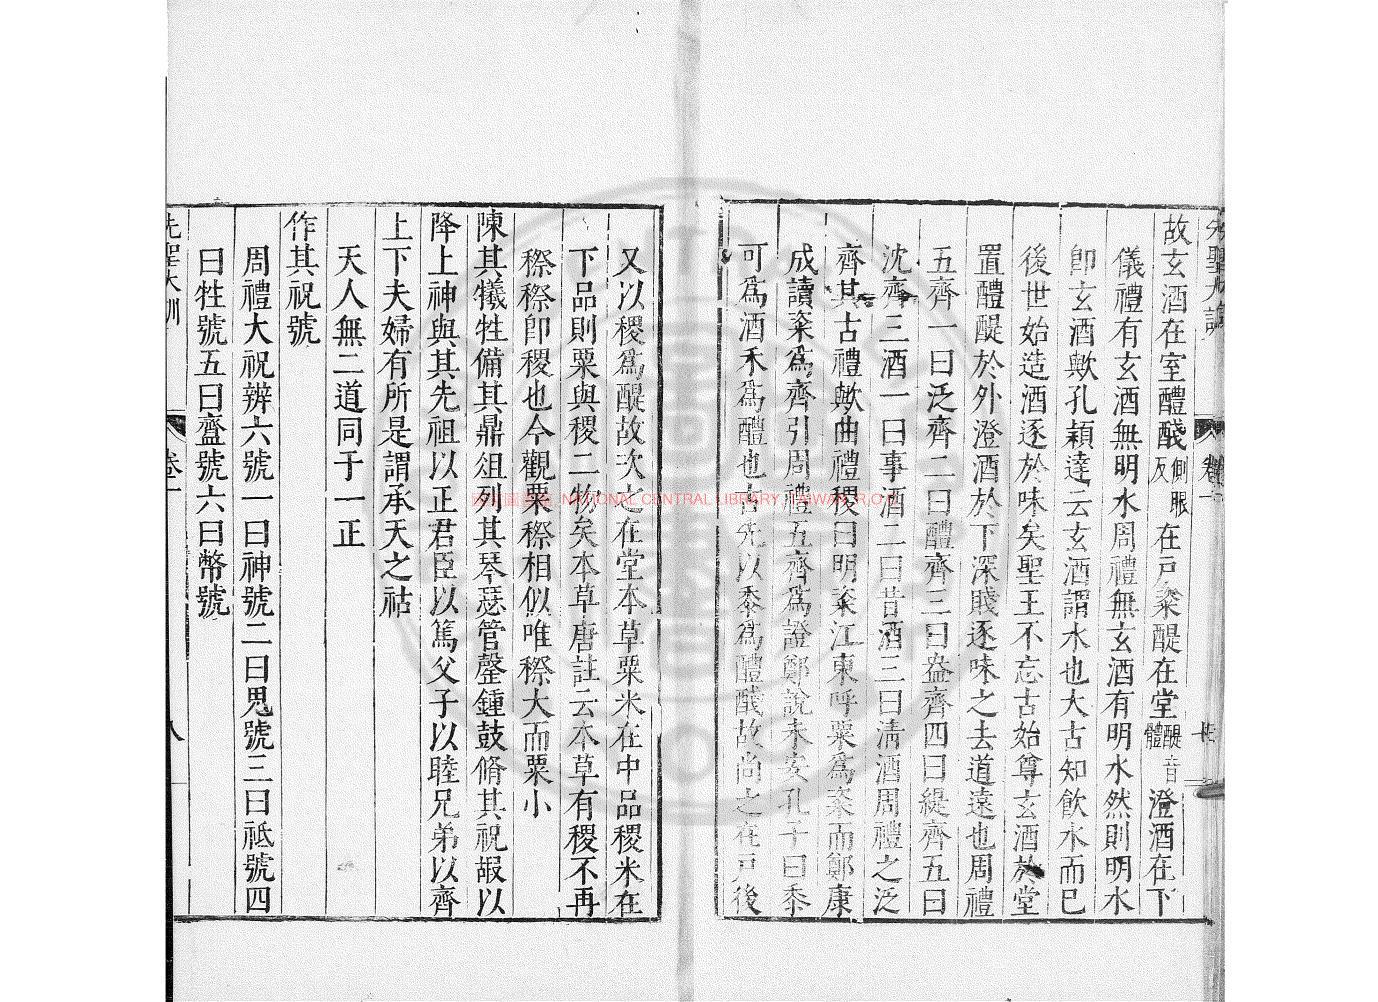 故玄酒在室醴醆側眼反在戶粢醍在堂醍音體澄酒在下
儀禮有玄酒無明水周禮無玄酒有明水然則明水
卽玄酒歟孔穎達云玄酒謂水也大古知飮水而已
後世始造酒逐於味矣聖王不忘古始尊玄酒於堂
置醴醍於外澄酒於下深賤逐味之去道遠也周禮
五齊一曰泛齊二曰醴齊三曰盎齊四曰緹齊五曰
沈齊三酒一曰事酒二曰昔酒三曰淸酒周禮之泛
齊其古禮歟曲禮稷曰明粢江東呼粟爲粢而鄭康
成讀粢爲齊引周禮五齊爲證鄭說未安孔子曰黍
可爲酒禾爲醴也古先以黍爲醴醆故尚之在戶後
又以稷爲醍故次之在堂本草粟米在中品稷米在
下品則粟與稷二物矣本草唐註云本草有稷不再
穄穄卽稷也今觀粟穄相似唯穄大而粟小
陳其犧牲備其鼎俎列其琴瑟管磬鍾鼓脩其祝嘏以
降上神與其先祖以正君臣以篤父子以睦兄弟以齊
上下夫婦有所是謂承天之祜
天人無二道同于一正
作其祝號
周禮大祝辨六號一曰神號二曰鬼號三曰祗號四
曰牲號五曰齍號六曰幣號
先聖大訓
卷一
八
NATIONAL CENTRAL LIBRARY, TAIWAN, R.O.C.